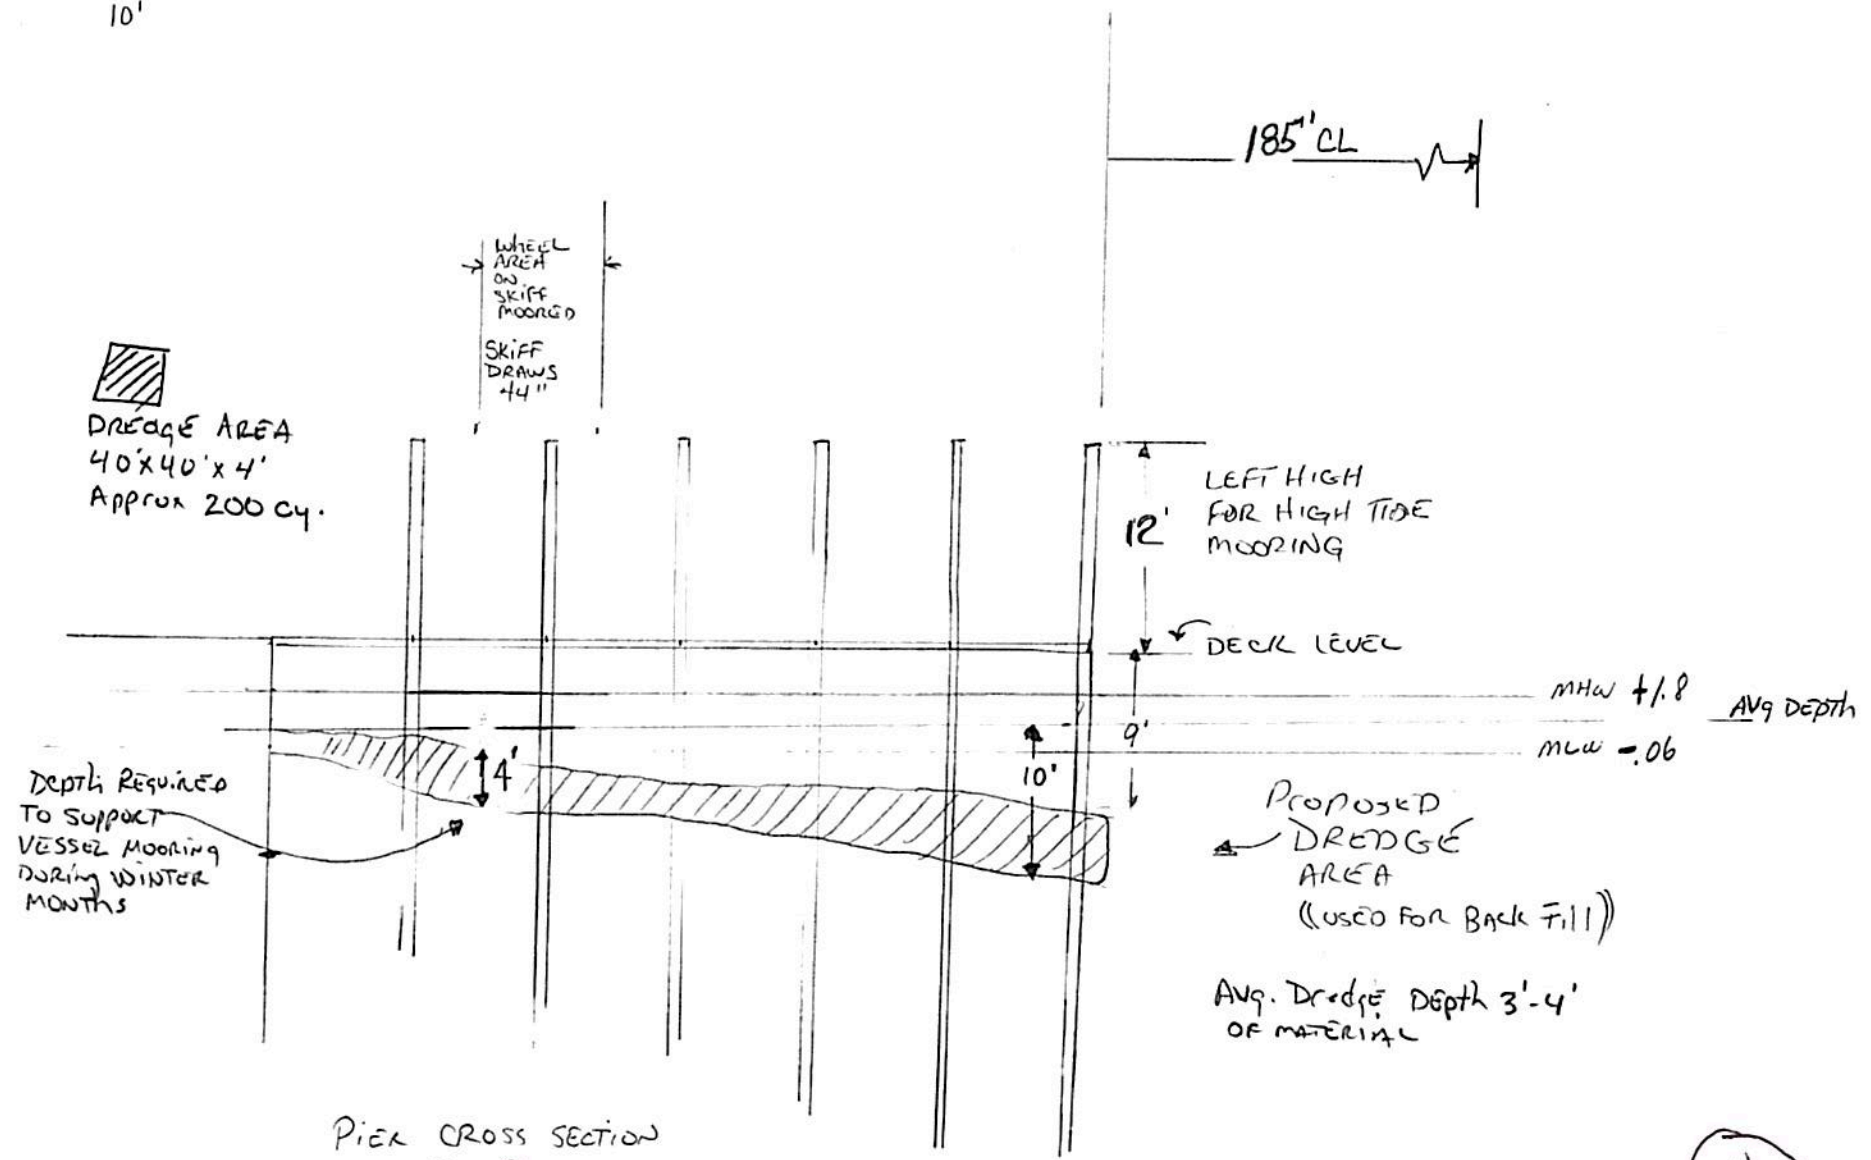 10'
185' CL
WHEEL
AREA
ON
SKIFF
MOORED
SKIFF
DRAWS
44"
DREDGE AREA
40'x40'x4'
Approx 200 cy.
12'
LEFT HIGH
FOR HIGH TIDE
MOORING
DECK LEVEL
MHW +1.8
AVG DEPTH
9'
MLW -.06
4'
10'
Depth Required
TO SUPPORT
VESSEL MOORING
DURING WINTER
MONTHS
PROPOSED
DREDGE
AREA
((USED FOR BACK Fill))
Avg. Dredge Depth 3'-4'
OF MATERIAL
PIER CROSS SECTION